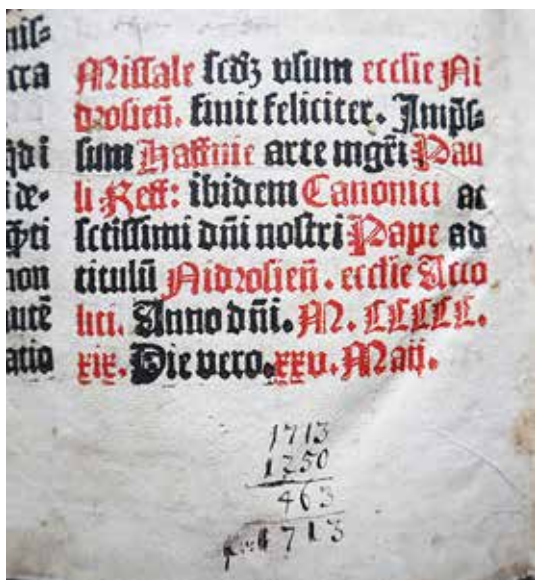 nis⸗
cra
i de⸗
non
utē
atio
Missale scd'z vsum ecclie Ni
drosieñ. finit feliciter. Imp̄s⸗
sum Haffnie arte mgr̄i Pau
li Reff: ibidem Canonici ac
sctissimi dn̄i nostri Pape ad
titulū Nidrosieñ. ecclie Acco
liti. Anno dn̄i. M. CCCCC.
xix. Die vero. xxv. Maij.
1713
1250
463
1713